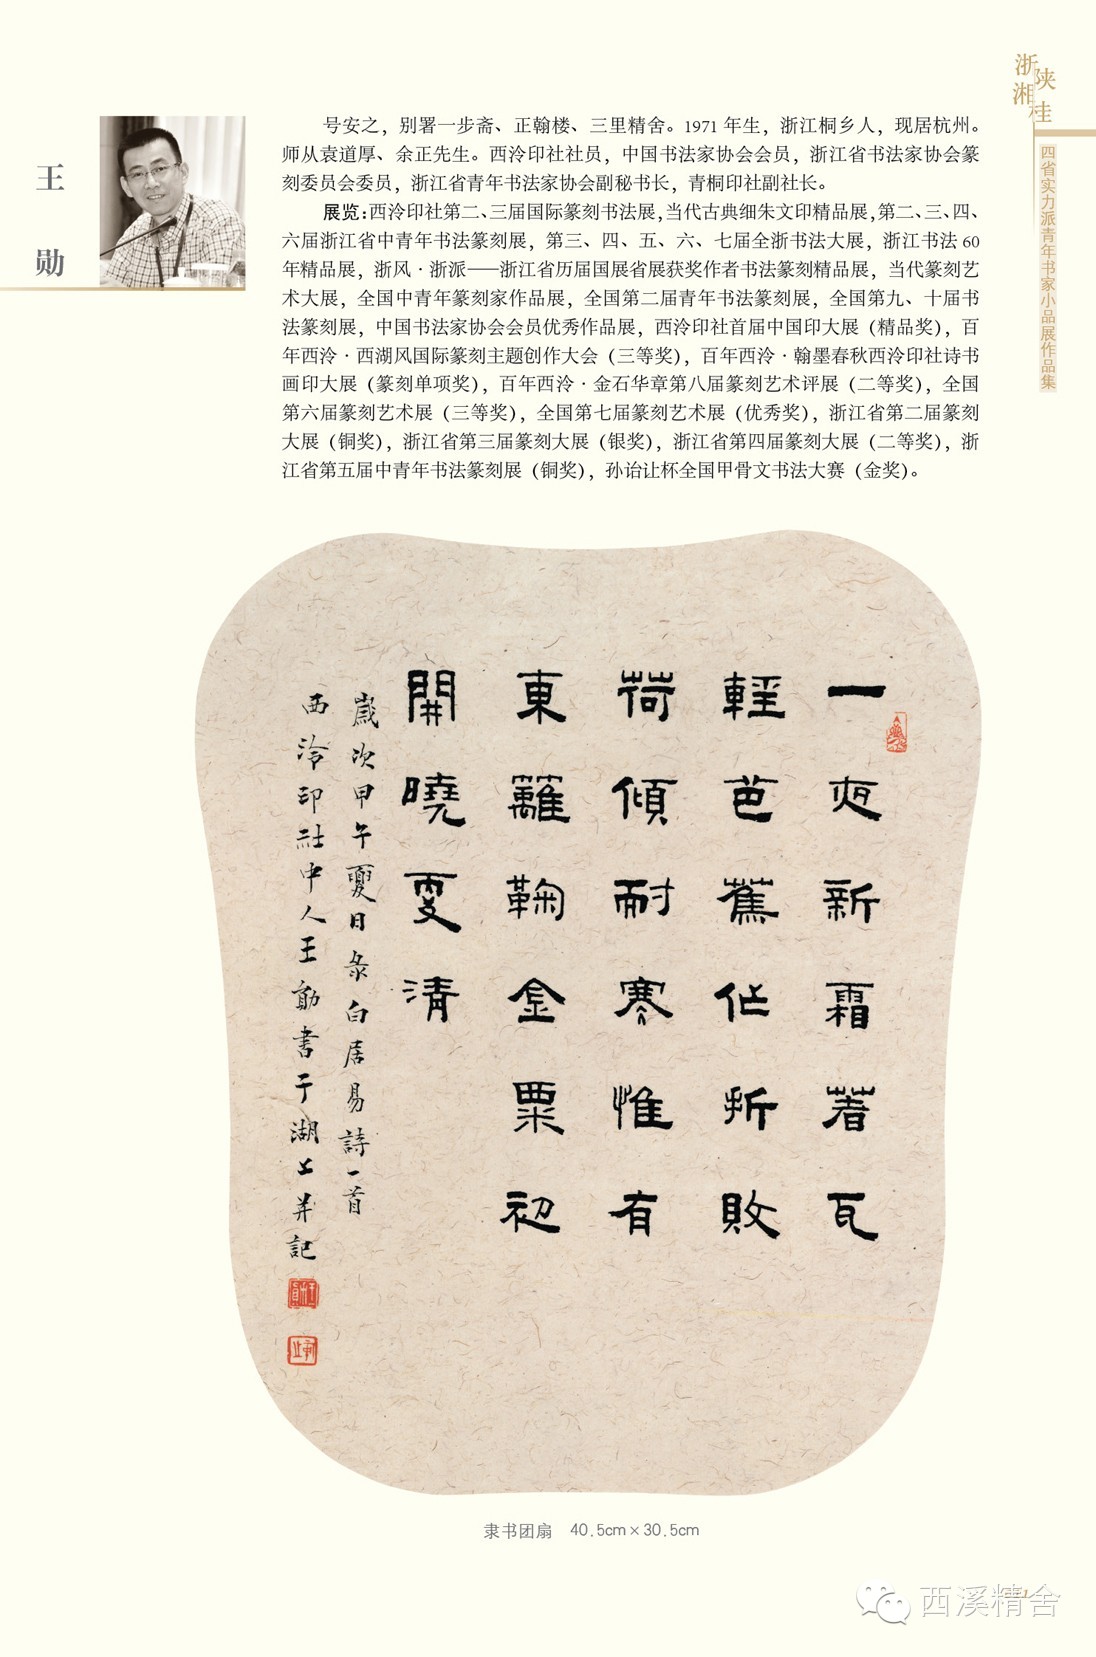 浙湘
陕桂
四省实力派青年书家小品展作品集
王勋
号安之，别署一步斋、正翰楼、三里精舍。1971 年生，浙江桐乡人，现居杭州。
师从袁道厚、余正先生。西泠印社社员，中国书法家协会会员，浙江省书法家协会篆
刻委员会委员，浙江省青年书法家协会副秘书长，青桐印社副社长。
展览：西泠印社第二、三届国际篆刻书法展，当代古典细朱文印精品展，第二、三、四、
六届浙江省中青年书法篆刻展，第三、四、五、六、七届全浙书法大展，浙江书法 60
年精品展，浙风·浙派——浙江省历届国展省展获奖作者书法篆刻精品展，当代篆刻艺
术大展，全国中青年篆刻家作品展，全国第二届青年书法篆刻展，全国第九、十届书
法篆刻展，中国书法家协会会员优秀作品展，西泠印社首届中国印大展（精品奖），百
年西泠·西湖风国际篆刻主题创作大会（三等奖），百年西泠·翰墨春秋西泠印社诗书
画印大展（篆刻单项奖），百年西泠·金石华章第八届篆刻艺术评展（二等奖），全国
第六届篆刻艺术展（三等奖），全国第七届篆刻艺术展（优秀奖），浙江省第二届篆刻
大展（铜奖），浙江省第三届篆刻大展（银奖），浙江省第四届篆刻大展（二等奖），浙
江省第五届中青年书法篆刻展（铜奖），孙诒让杯全国甲骨文书法大赛（金奖）。
一夜新霜著瓦
輕芭蕉伫折敗
荷傾耐寒惟有
東籬鞠金粟初
開曉更清
歲次甲午夏日彔白居易詩一首
西泠印社中人王勛書于湖上并記
隶书团扇 40.5cm×30.5cm
西溪精舍